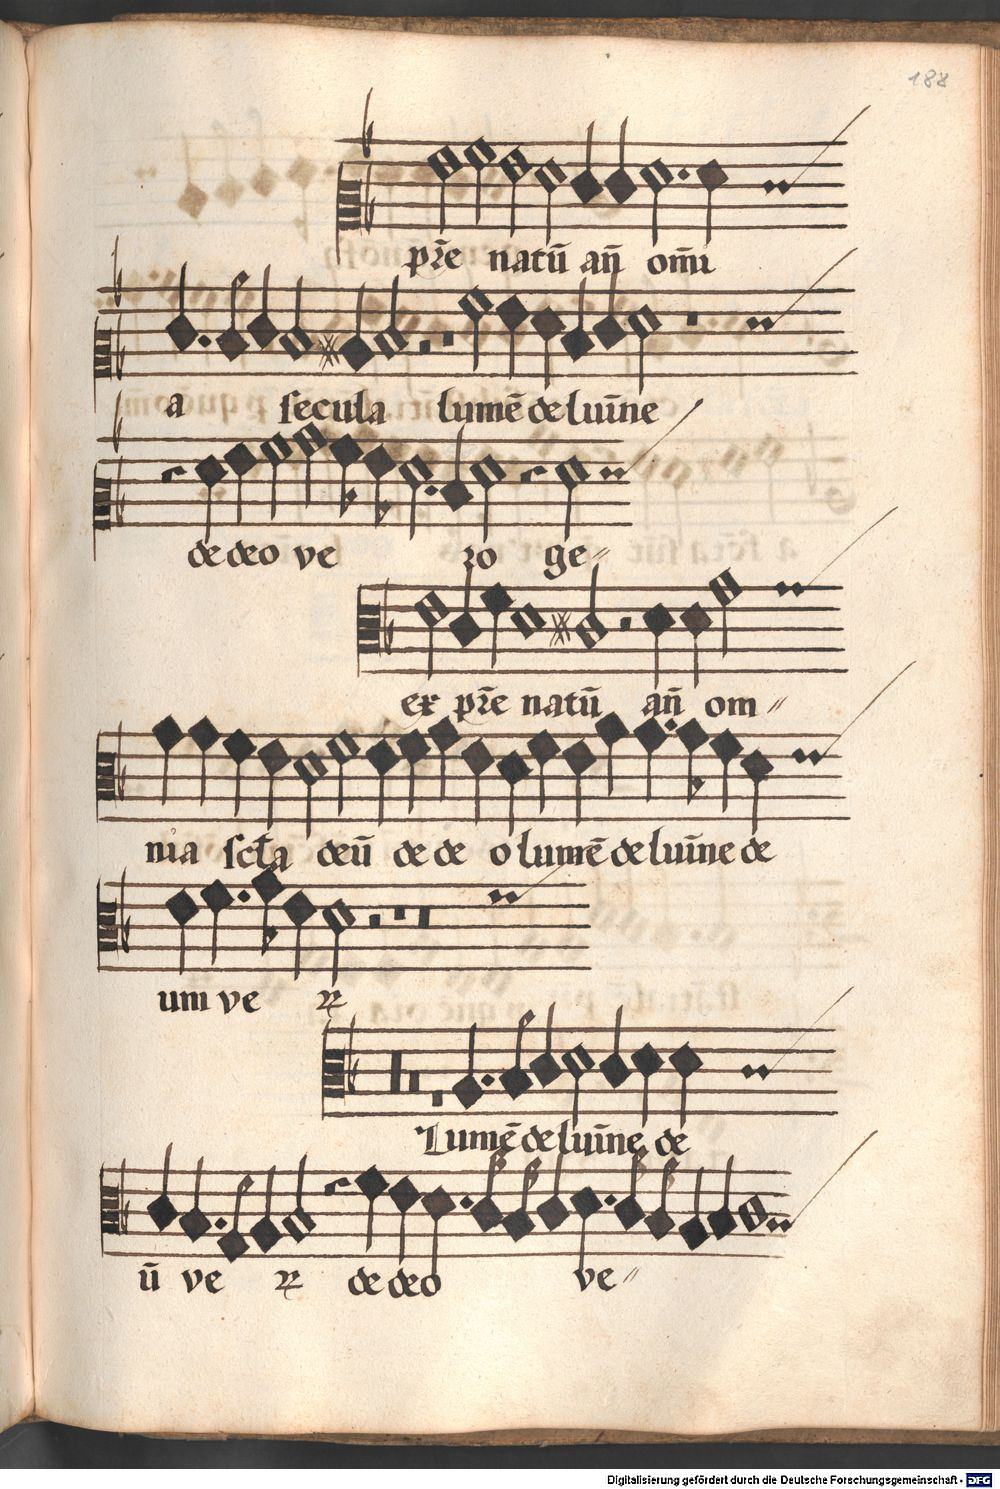 188
pr̄e natū an̄ om̄i
a secula lumē de lūıne
de deo ve ro ge〃
ex pr̄e natū an̄ om〃
nia sct̄a deū de de o lumē de lūıne de
um ve ꝝ
Lumē de lūıne de
ū ve ꝝ de deo ve〃
Digitalisierung gefördert durch die Deutsche Forschungsgemeinschaft - DFG